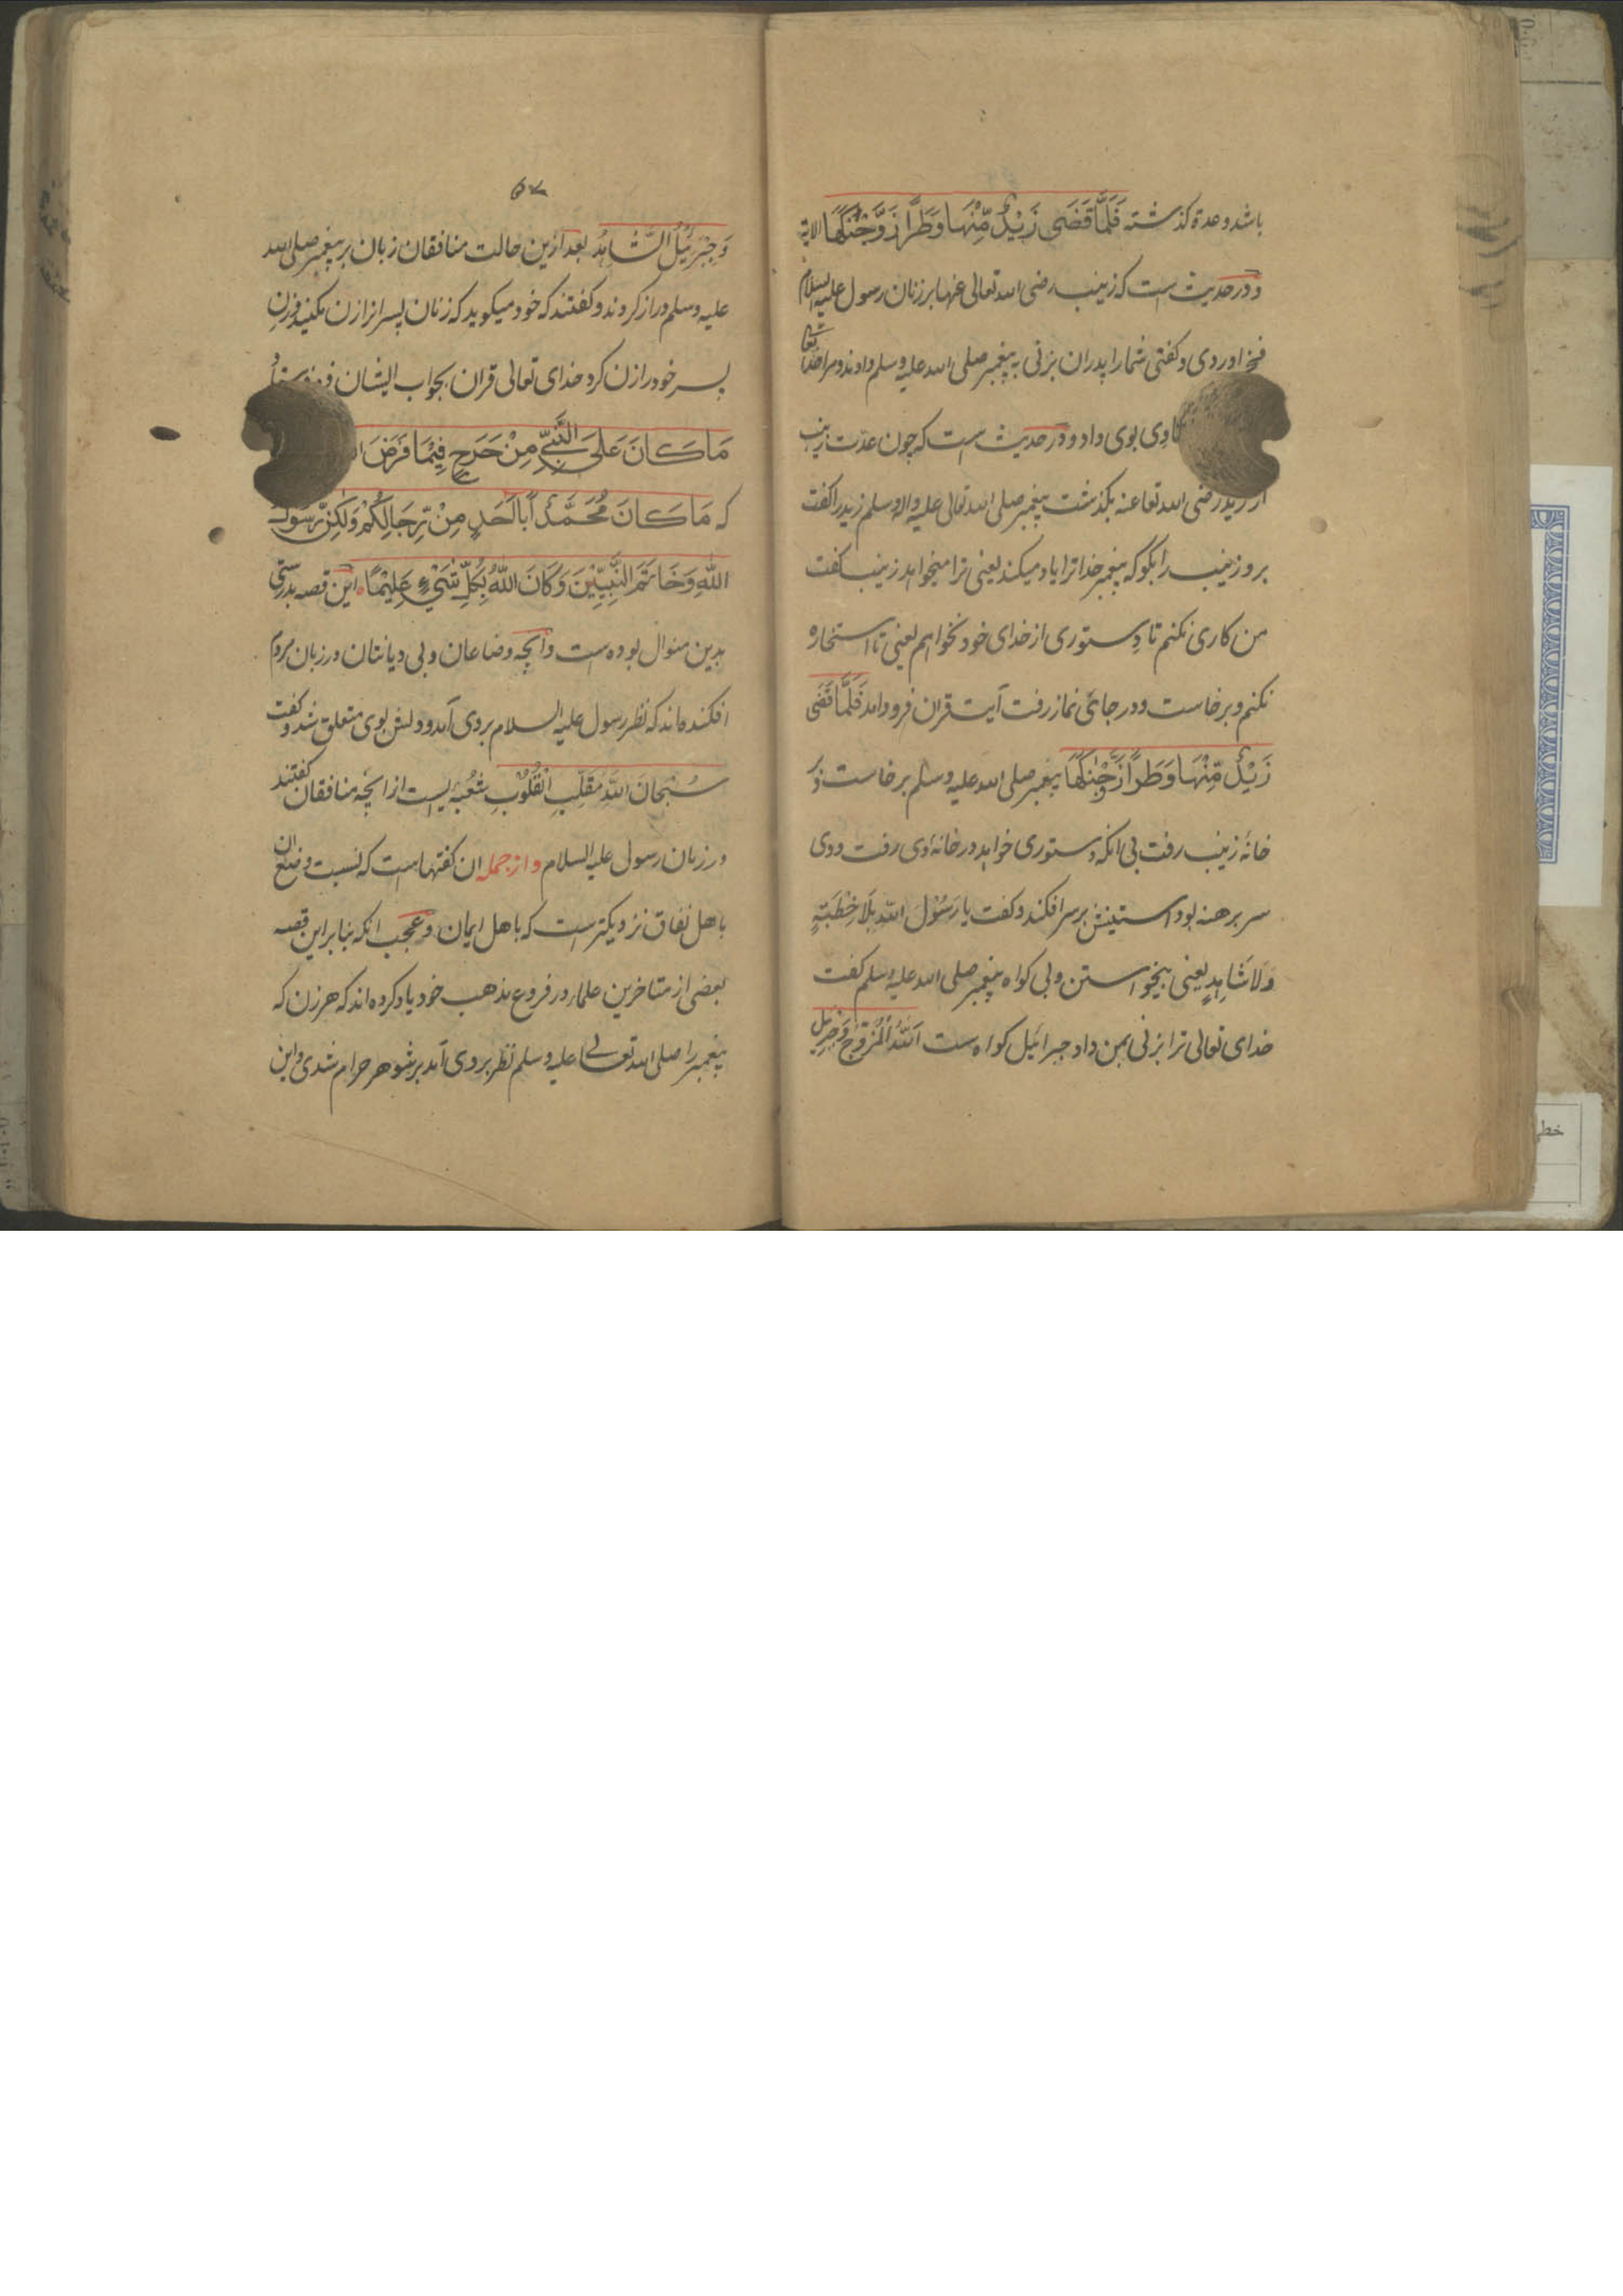 باشد وعدة گذشته فَلَمَّا قَضَى زَيْدٌ مِّنْهَا وَطَرًا زَوَّجْنٰكَهَا الایة
و در حدیث است که زینب رضی الله تعالی عنها بر زنان رسول علیه السلام
فخر اوردی و کفتی شمارا پدران بزنی به پیغمبر صلی الله علیه وسلم دادند و مرا خدا تعالی
بوی داد و در حدیث است که چون عدّت زینب
از زید رضی الله تعا عنه بگذشت پیغمبر صلی الله تعالی علیه واله وسلم زید را کفت
برو زینب را بگو که پیغمبر خدا ترا یاد میکند یعنی ترا میخواهد زینب کفت
من کاری نکنم تا دستوری از خدای خود نخواهم یعنی تا استخاره
نکنم و برخاست و در جائی نماز رفت آیت قران فرود امد فَلَمَّا قَضٰی
زَيْدٌ مِّنْهَا وَطَرًا زَوَّجْنٰكَهَا پیغمبر صلی الله علیه وسلم برخاست و در
خانهٔ زینب رفت بی انکه دستوری خواهد در خانهٔ وی رفت و وی
سر برهنه بود استینش بر سر افکند و کفت یا رَسُوْلَ اللّٰهِ بِلَا خِطْبَتِهٖ
وَلَا شَاهِدٍ یعنی بیخواستن و بی کواه پیغمبر صلی الله علیه وسلم کفت
خدای تعالی ترا بزنی بمن داد جبرائیل کواه است اَللّٰهُ الْمُزَوِّجُ وَجِبْرِیْلُ
۵۷
وَجِبْرَئِیْلُ الشَّاهِدُ بعد ازین حالت منافقان زبان بر پیغمبر صلی الله
علیه وسلم دراز کردند و کفتند که خود میکوید که زنان پسرانرا زن مکنید و زن
پسر خود را زن کرد خدای تعالی قران بجواب ایشان
مَا كَانَ عَلَى النَّبِيِّ مِنْ حَرَجٍ فِيْمَا فَرَضَ
که مَا كَانَ مُحَمَّدٌ اَبَا اَحَدٍ مِّنْ رِّجَالِكُمْ وَلٰكِنْ رَّسُوْلَ
اللّٰهِ وَخَاتَمَ النَّبِيِّيْنَ وَكَانَ اللّٰهُ بِكُلِّ شَيْءٍ عَلِيْمًا این قصه بدرستی
بدین منوال بوده است و انچه وضاعان و بی دیانتان در زبان مردم
افکنده اند که نظر رسول علیه السلام بر وی آمد و دلش بوی متعلق شد و کفت
سُبْحَانَ اللّٰهِ مُقَلِّبِ الْقُلُوْبِ شعبه ایست از انچه منافقان کفتند
در زبان رسول علیه السلام و از جمله ان کفتهاست که نسبت وضع ان
باهل نفاق نزدیکتر است که باهل ایمان و عجب انکه بنابر این قصه
بعضی از متاخرین علماء در فروع مذهب خود یاد کرده اند که هر زن که
پیغمبر را صلی الله تعالی علیه وسلم نظر بر وی آمد بر شوهر حرام شدی و این
خطی